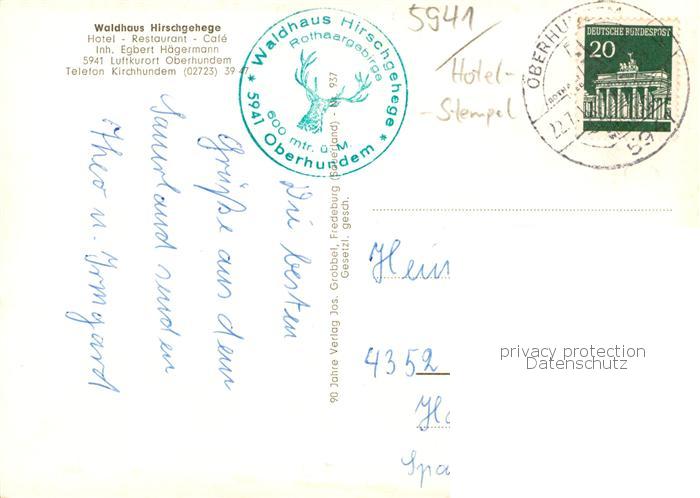 Waldhaus Hirschgehege
Hotel - Restaurant - Café
Inh. Egbert Hägermann
5941 Luftkurort Oberhundem
Telefon Kirchhundem (02723) 39 47
* Waldhaus Hirschgehege *
Rothaargebirge
600 mtr. ü. M.
5941 Oberhundem
5941
Hotel-
-Stempel
OBERHUNDEM
22.7.
59
DEUTSCHE BUNDESPOST
20
Die besten
Grüße aus dem
Sauerland senden
Theo u. Irmgard
90 Jahre Verlag Jos. Grobbel, Fredeburg (Sauerland) - Nr. 937
Gesetzl. gesch.
Hein
4352
Ha
Spa
privacy protection
Datenschutz